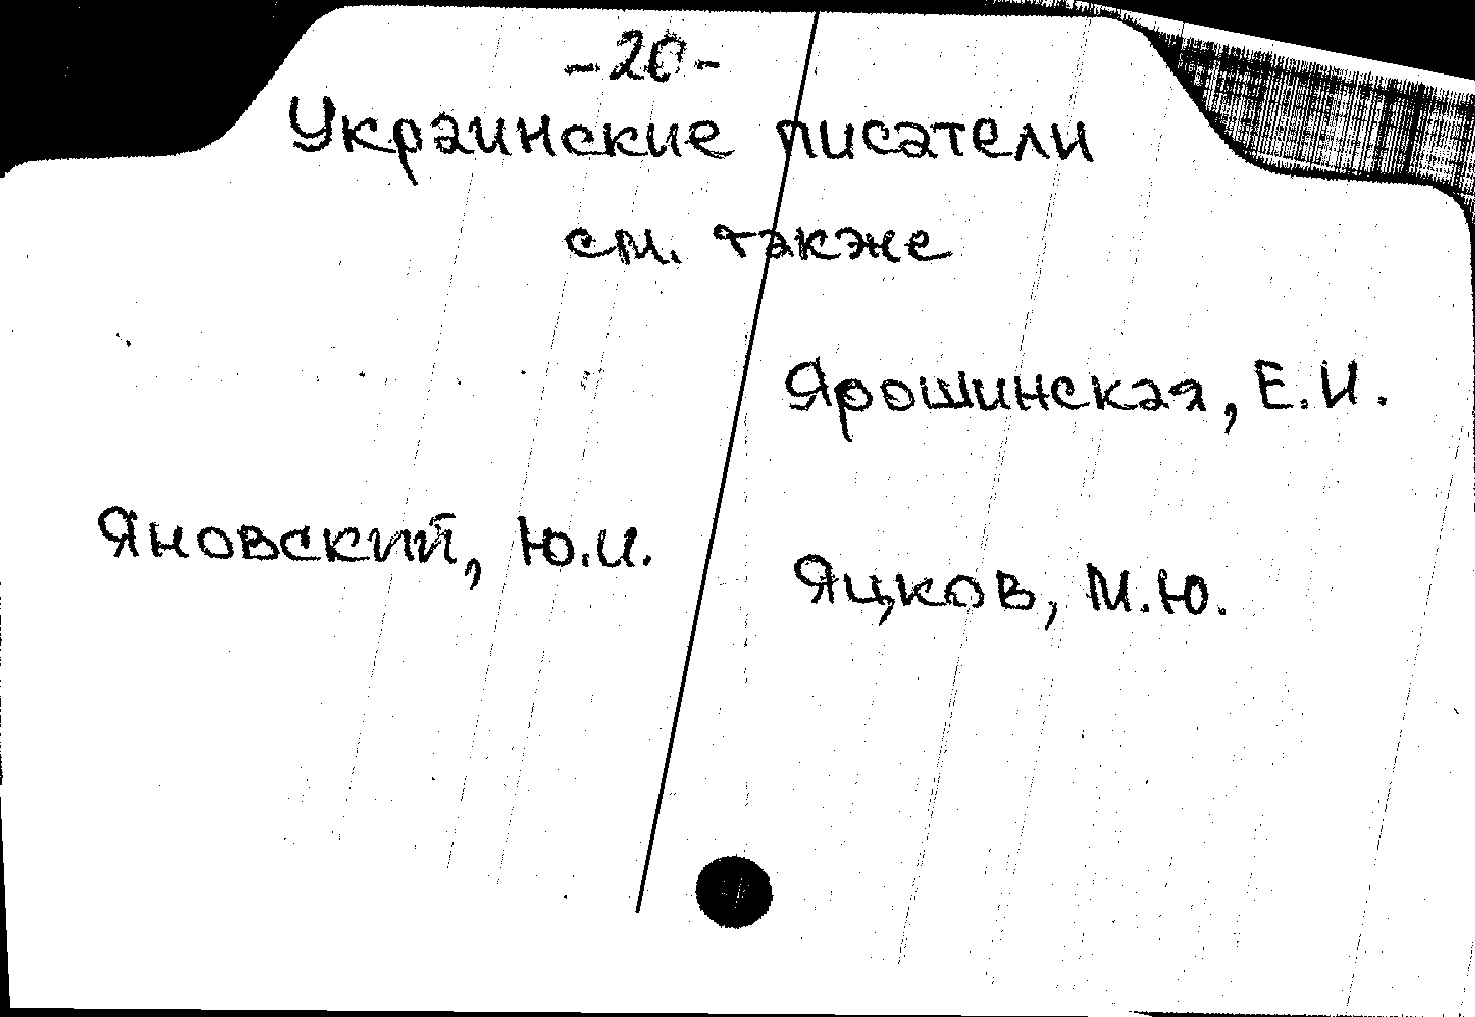 -20-
Украинские писатели
см. также
Ярошинская, Е.И.
Яновский, Ю.И.
Яцков, М.Ю.